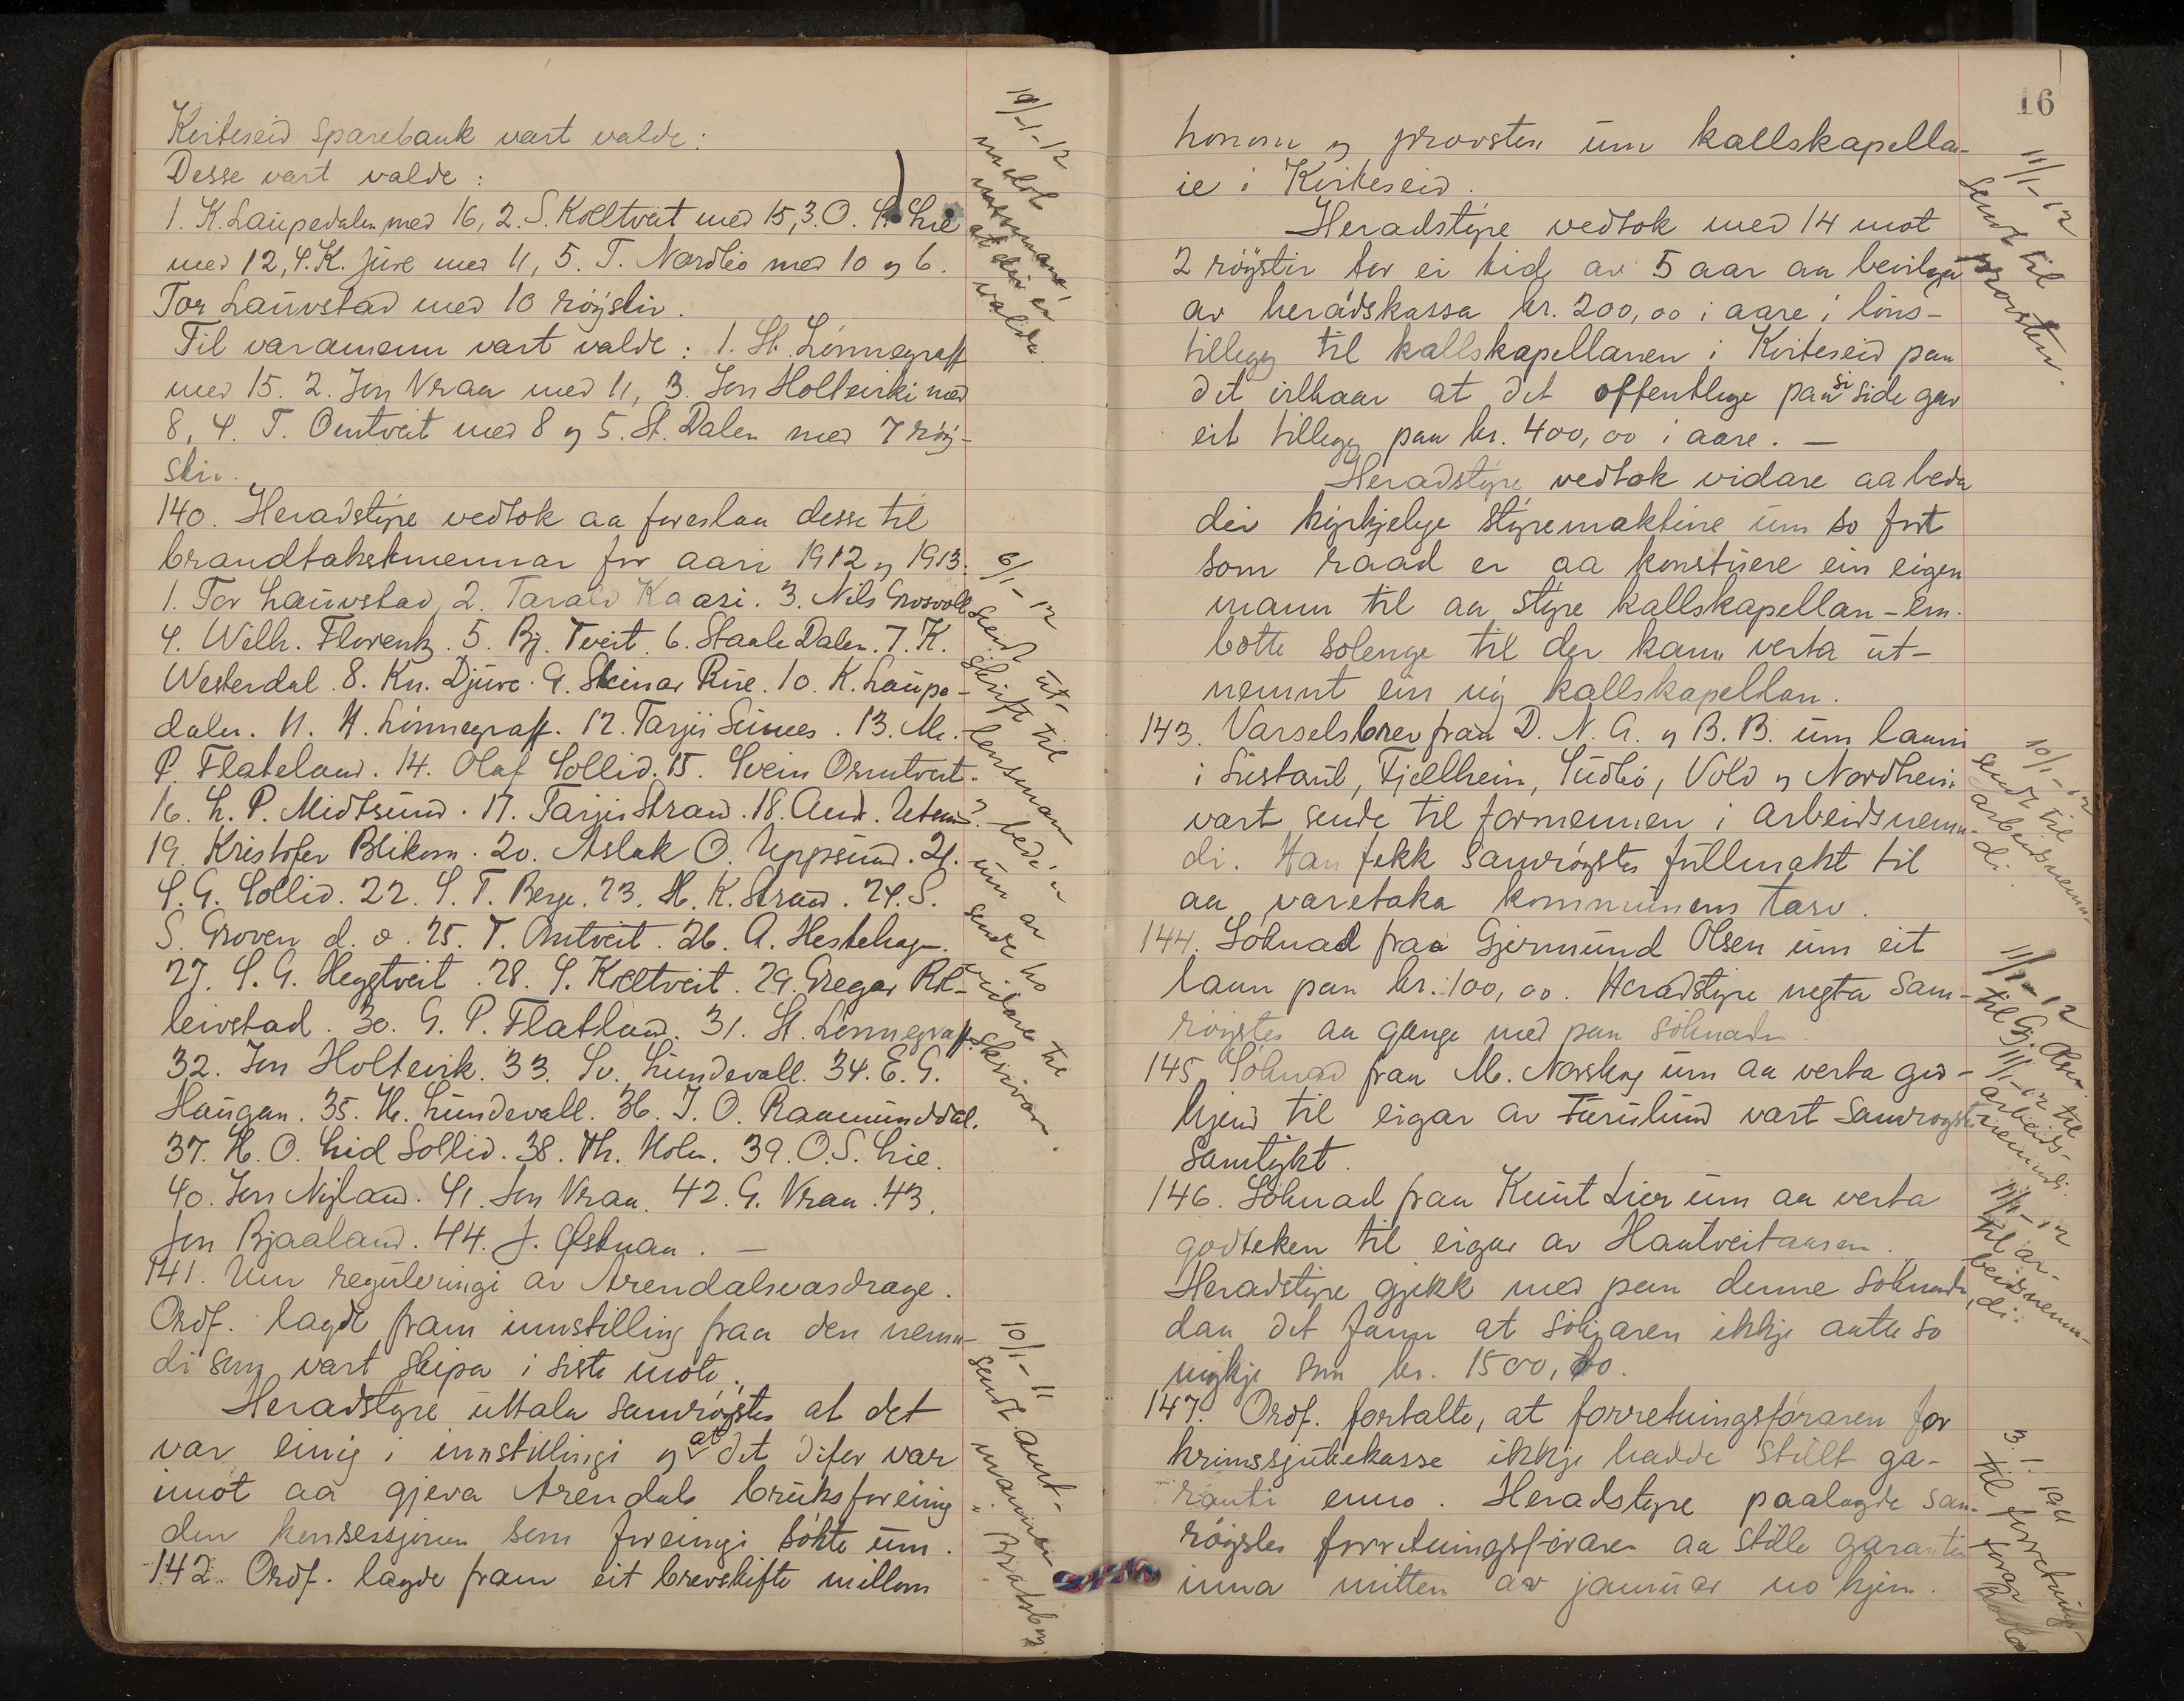 Kviteseid Sparebank vart valde:
Desse vart valde:
1. K. Laupedalen med 16, 2. S. Kveltveit med 15, 3. O. S. Lie
med 12, 4. K. Juve med 11, 5. T. Nordbö med 10 og 6.
Tor Lauvstad med 10 röyster.
Til varamenn vart valde: 1. St. Lönnegraff
med 15. 2. Jon Vraa med 11, 3. Jon Holtvirki med
8, 4. T. Omtveit med 8 og 5. St. Dalen med 7 röy-
ster.
140. Heradstyre vedtok aa foreslaa desse til
brandtakstmennar for aari 1912 og 1913.
1. Tor Lauvstad, 2. Tarald Kaasi. 3. Nils Grosvoll
4. Wilh. Florentz. 5. Bj. Tveit. 6. Staale Dalen. 7. K.
Westerdal. 8. Kn. Djuve. 9. Steinar Rue. 10. K. Laupe-
dalen. 11. H. Lönnegraff. 12. Tarjei Seines. 13. M.
P. Flateland. 14. Olaf Sollid. 15. Svein Omtveit.
16. L. P. Midtsund. 17. Tarjei Strand. 18. And. Utsund.
19. Kristofer Blikom. 20. Aslak O. Uppsund. 21.
S. G. Sollid. 22. S. T. Berge. 23. H. K. Strand. 24. S.
S. Groven d. o. 25. T. Omtveit. 26. A. Hestehag.
27. S. G. Heggtveit. 28. S. Kveltveit. 29. Gregar Rot-
leivstad. 30. G. P. Flatland. 31. St. Lönnegraff.
32. Jon Holtvirk. 33. Sv. Lundevall. 34. E. G.
Haugan. 35. H. Lundevall. 36. J. O. Raamunddal.
37. H. O. Lid Sollid. 38. Th. Holm. 39. O. S. Lie.
40. Jon Nyland. 41. Jon Vraa. 42. G. Vraa. 43.
Jon Bjaaland. 44. J. Østman. —
141. Um reguleringi av Arendalsvasdrage.
Ordf. lagde fram innstilling fraa den nemn-
di som vart skipa i siste möte.
Heradstyre uttala samröystes at det
var einig i innstillingi og at det difor var
imot aa gjeva Arendals bruksforeining
den konsessjonen som foreiningi sökte um.
142. Ordf. lagde fram eit brevskifte millom
19/1-12
melde
at dei er
valde.
6/1-12
Sendt ut-
skrift til
lensmann
og bede'n
um aa
sende ho
vidare til
skrivar.
10/1-11
sendt amt-
mannen
i Bratsberg.
16
honom og provsten um kallskapella-
ie i Kviteseid.
Heradstyre vedtok med 14 mot
2 röyster for ei tid av 5 aar aa bevilga
av heradskassa kr. 200,00 i aare i löns-
tillegg til kallskapellanen i Kviteseid paa
det vilkaar at det offentlege paa si side gav
eit tillegg paa kr. 400,00 i aare. —
Heradstyre vedtok vidare aa beda
dei kyrkjelege styremaktine um so fort
som raad er aa konstituere ein eigen
mann til aa styre kallskapellan-em-
bötte solenge til der kann verta ut-
nemnt ein ny kallskapellan.
143. Varselsbrev fraa D. N. A. og B. B. um laani
i Sustaul, Fjellheim, Sudbö, Vold og Nordheim
vart sende til formennen i arbeidsnemn-
di. Han fekk samröystes fullmakt til
aa varetaka kommunens tarv.
144. Söknad fraa Gjermund Olsen um eit
laan paa kr. 100,00. Heradstyre negta sam-
röystes aa gange med paa söknaden.
145. Söknad fraa M. Norskog um aa verta god-
kjend til eigar av Furulund vart samröystes
samtykt.
146. Söknad fraa Knut Lier um aa verta
godteken til eigar av Hautveitaasen.
Heradstyre gjekk med paa denne söknaden,
daa det fann at sökjaren ikkje aatte so
mykje som kr. 1500,00.
147. Ordf. fortalte, at forretningsföraren for
krinssjukekasse ikkje hadde stillt ga-
ranti enno. Heradstyre paalagde sam-
röystes forretningsföraren aa stille garantien
inna mitten av januar no kjem.
11/1-12
sendt til
provsten.
10/1-12
sendt til
arbeidsnemn-
di.
11/1-12
til Gj. Olsen
11/1-12 til
arbeids-
nemndi.
11/1-12
til ar-
beidsnemn-
di.
3.1. 1912
til forretnings-
förar